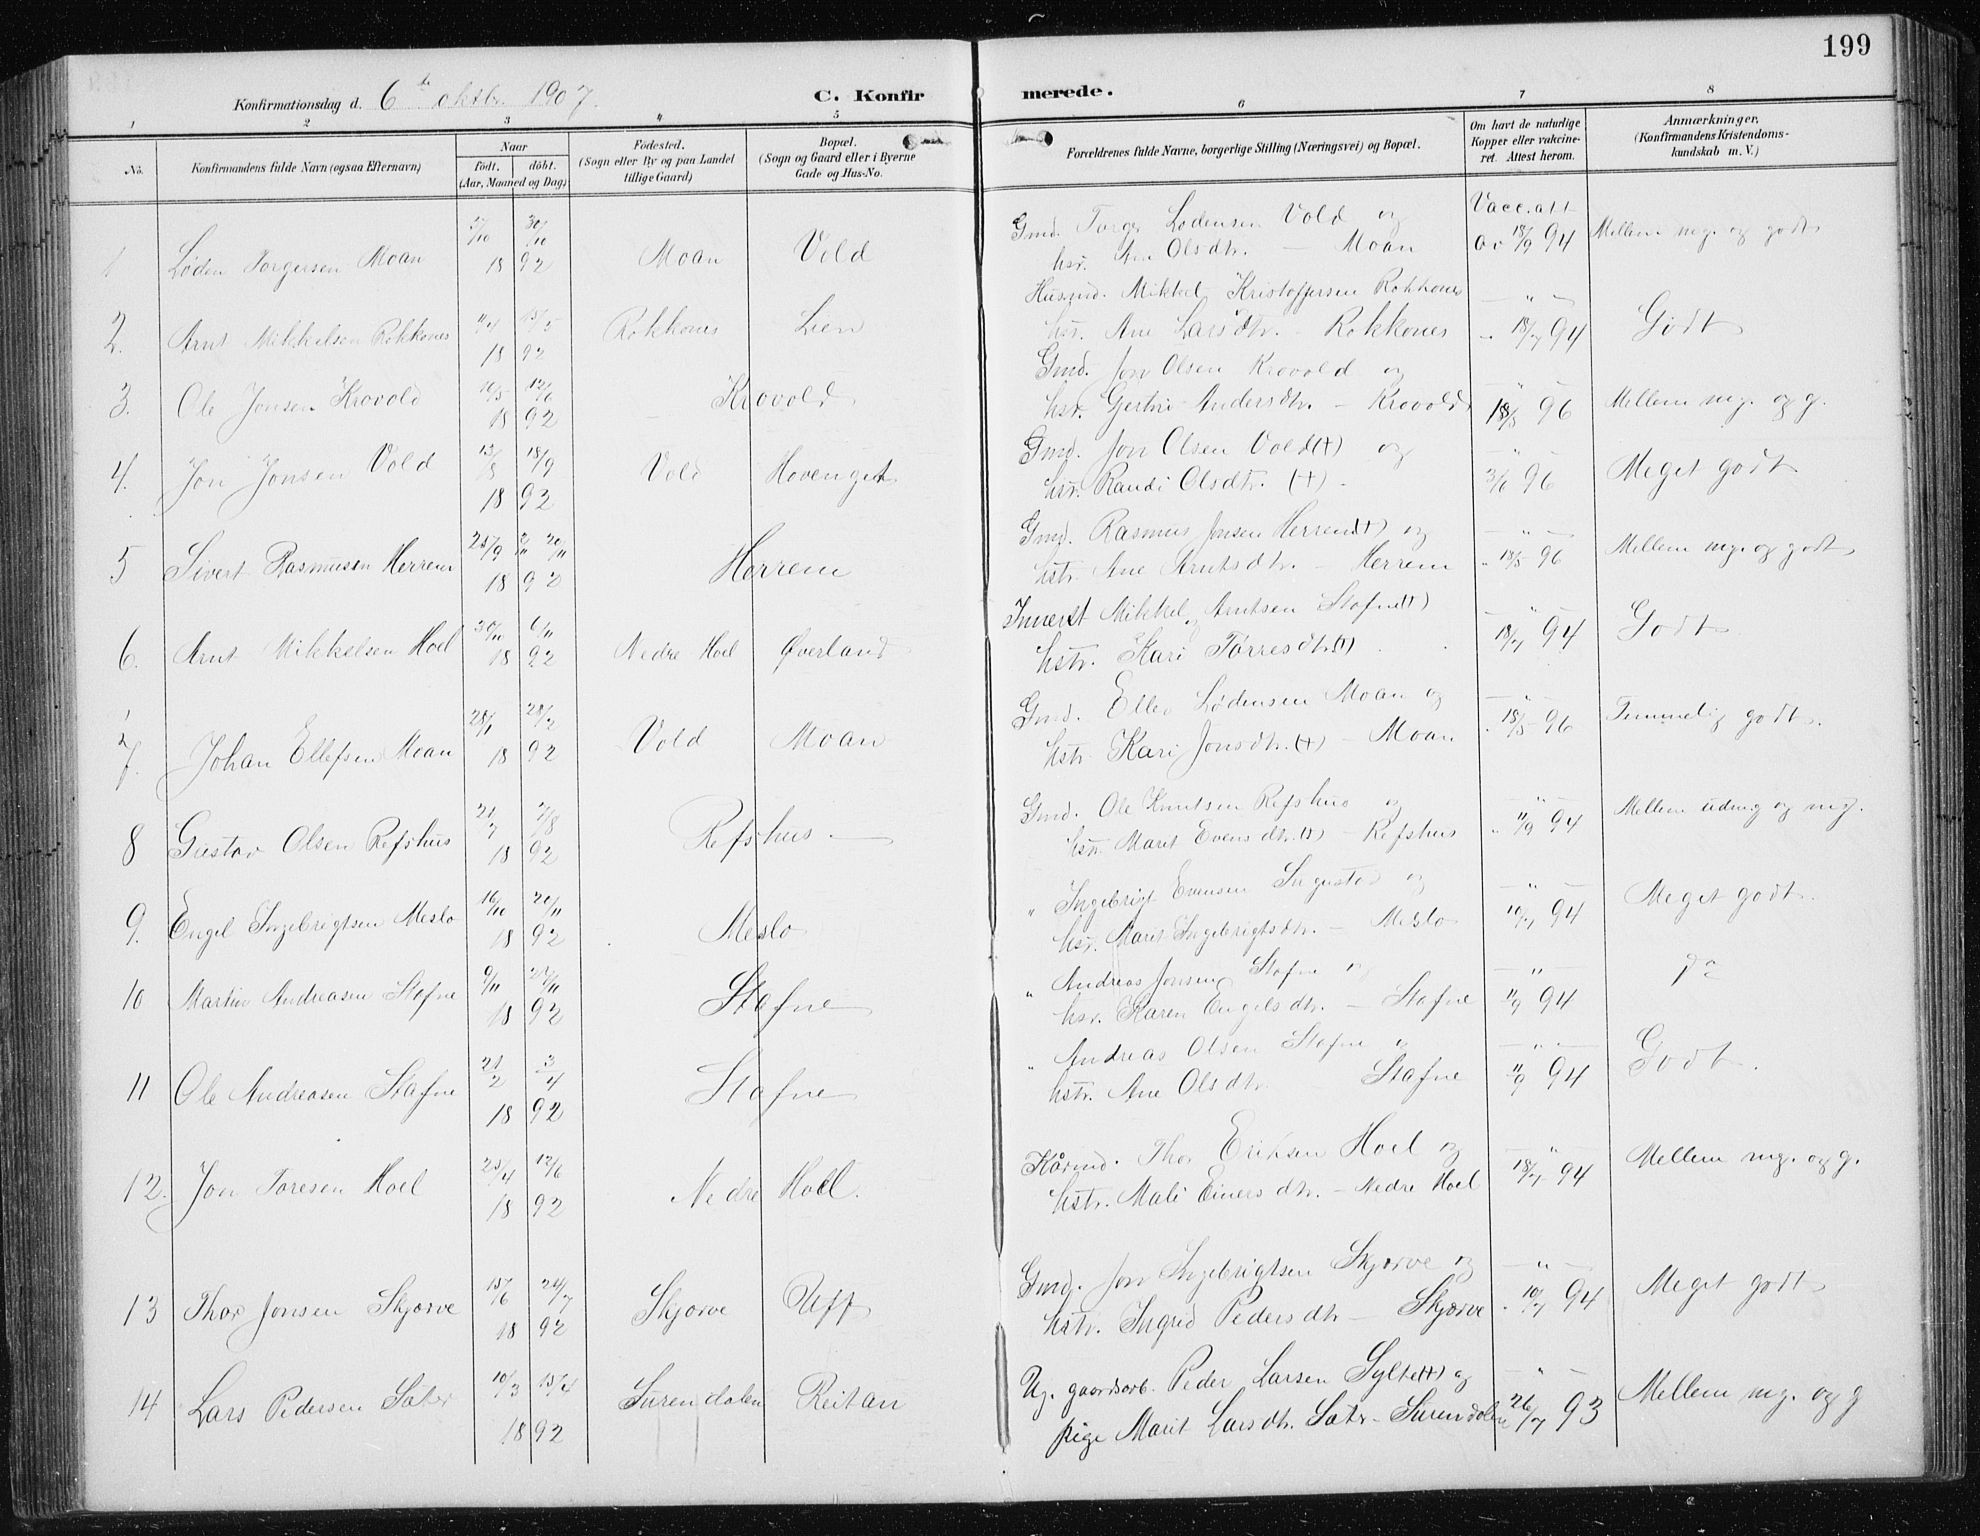 199
Konfirmationsdag d. 6te oktbr. 1907.
C. Konfirmerede.
1 2 3 4 5 6 7 8
No. Konfirmandens fulde Navn (ogsaa Efternavn) Naar født. døbt. (Aar, Maaned og Dag) Fødested. (Sogn eller By og paa Landet tillige Gaard) Bopæl. (Sogn og Gaard eller i Byerne Gade og Hus-No. Forældrenes fulde Navne, borgerlige Stilling (Næringsvei) og Bopæl. Om havt de naturlige Kopper eller vakcineret. Attest herom. Anmærkninger. (Konfirmandens Kristendomskundskab m. V.)
1 Løden Torgersen Moan 5/10 30/10 1892 Moan Vold Gmd. Torger Lødensen Vold og Vacc. att Mellem mg. og godt
hsr. Ane Olsdtr. — Moan av 18/9 94
2. Arnt Mikkelsen Rokkones 4/4 15/5 1892 Rokkones Lien Husmd. Mikkel Kristoffersen Rokkones — " — Godt
hsr. Ane Larsdtr. — Rokkones " 18/7 94
3. Ole Jonsen Krovold 10/5 12/6 1892 Krovold Gmd. Jon Olsen Krovold og — " — Mellem mg. og g.
hsr. Gertru Andersdtr. — Krovold 18/5 96
4. Jon Jonsen Vold 13/8 18/9 1892 Vold Hovenget Gmd. Jon Olsen Vold (+) og " Meget godt
hsr. Randi Olsdtr. (+) - 3/6 96
5 Sivert Rasmusen Herrem 25/9 2/11 20/11 1892 Herrem Gmd. Rasmus Jonsen Herrem (+) og — " — Mellem mg. og godt
hstr. Ane Arntsdtr. — Herrem " 18/5 96
6. Arnt Mikkelsen Hoel 30/10 6/11 1892 Nedre Hoel Øverland Innerst Mikkel Arntsen Stafne (+) og — " — Godt
hstr. Kari Torresdtr. (+) 18/7 94
7. Johan Ellefsen Moan 28/1 28/2 1892 Vold Moan Gmd. Ellev Lødensen Moan og — " — Temmelig godt.
hstr. Kari Jonsdtr. (+) — Moan " 18/5 96
8 Gustav Olsen Refshus 21/7 7/8 1892 Refshus — Gmd. Ole Knutsen Refshus og — " — Mellem udmg og mg.
hstr. Marit Evensdtr. (+) — Refshus " 11/9 94
9. Engel Ingebrigtsen Meslo 16/10 20/11 1892 Meslo " Ingebrigt Evensen og — " — Meget godt.
hsr. Marit Ingebrigtsdtr. — Meslo 10/7 94
10 Martin Andreasen Stafne 9/11 27/11 1892 Stafne " Andreas Jonsen Stafne og — " — do
hsr. Karen Engelsdtr. — Stafne 11/9 94
11 Ole Andreasen Stafne 21/2 3/4 1892 Stafne " Andreas Olsen Stafne " — " — Godt.
hstr. Ane Olsdtr. Stafne 11/9 94
12. Jon Toresen Hoel 25/4 12/6 1892 Nedre Hoel. Kårmd. Thor Eriksen Hoel og — " — Mellem mg. og g.
hstr. Mali Einersdtr. — Nedre Hoel 18/7 94
13 Thor Jonsen Skjærve 15/6 24/7 1892 Skjærve Uff Gmd. Jon Ingebrigtsen Skjærve og — " — Meget godt
hstr. Ingrid Pedersdtr — Skjærve " 10/7 94
14 Lars Pedersen Sæter 10/3 15/4 1892 Surendalen Reitan Ug. gaardsarb. Peder Larsen Sylte (+) og — " — Mellem mg. og g
pige Marit Larsdtr. Sætr — Surendalen 26/7 93